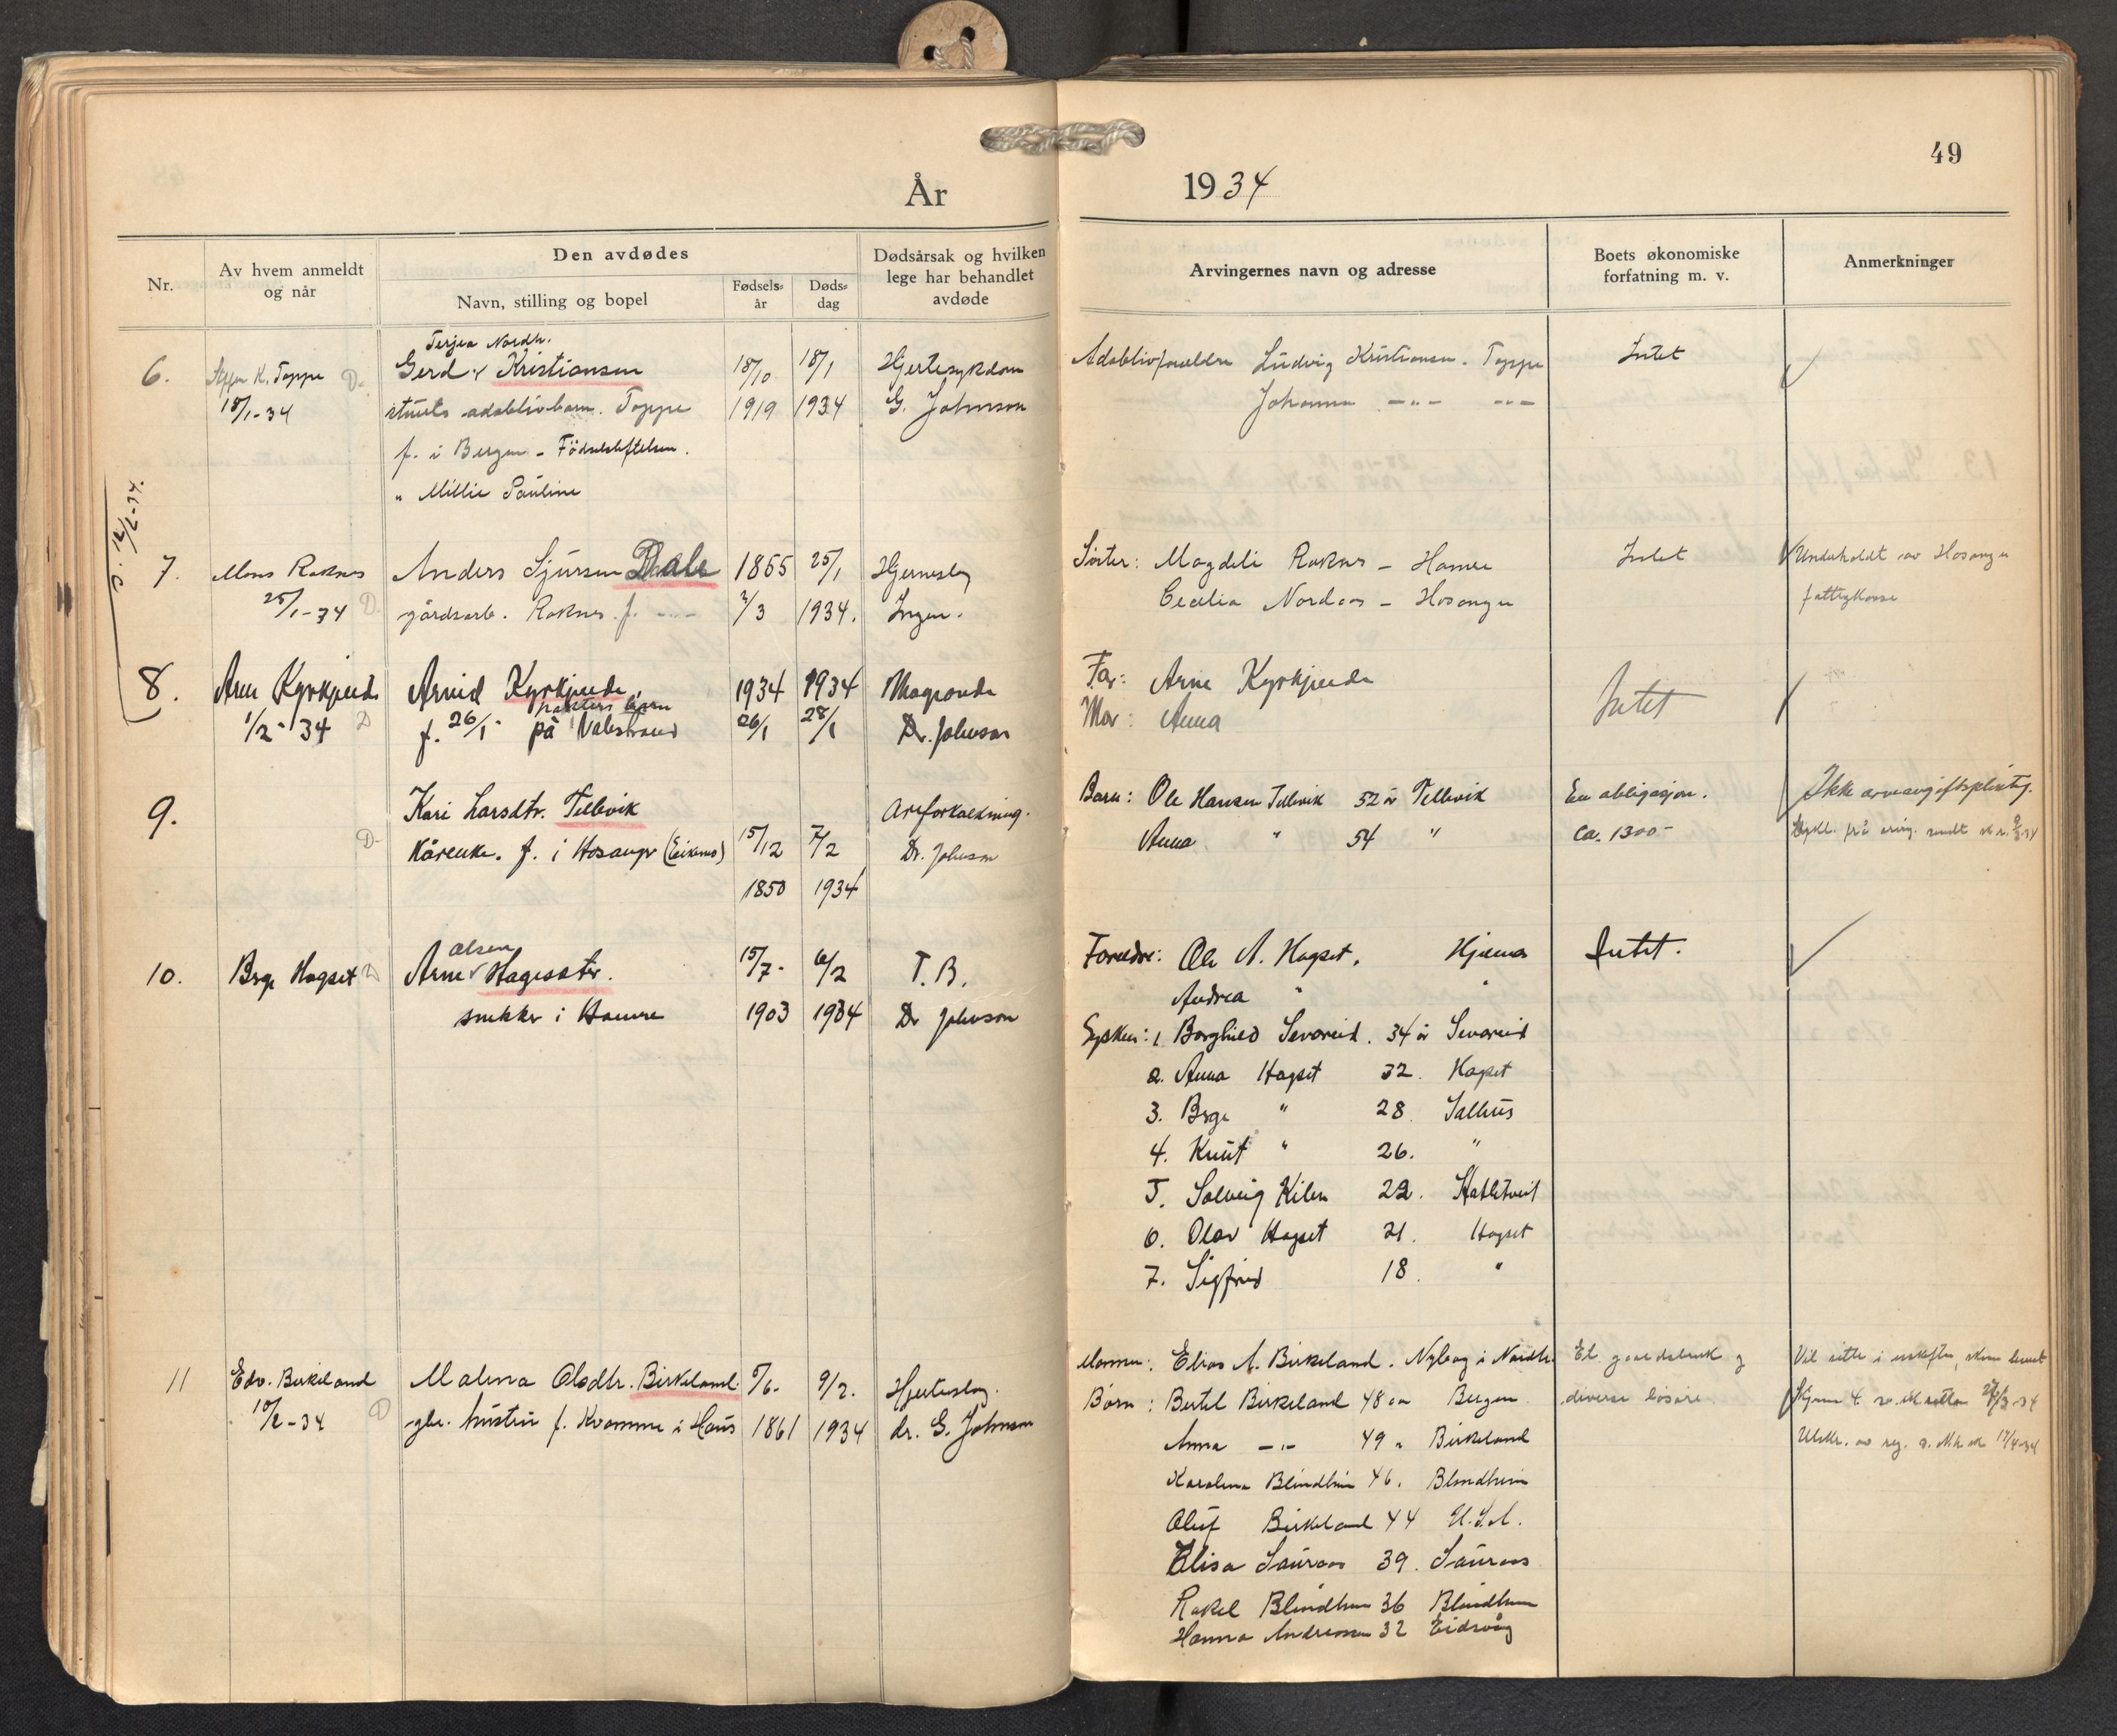 49
År 1934
Nr.
Av hvem anmeldt og når
Den avdødes
Navn, stilling og bopel
Fødsels- år
Døds- dag
Dødsårsak og hvilken lege har behandlet avdøde
Arvingernes navn og adresse
Boets økonomiske forfatning m. v.
Anmerkninger
Terjea Nordh.
6. K. Toppe D. Gerd Kristiansen 18/10 18/1 Hjertesykdom Ludvig Kristiansen. Toppe Intet
18/1-34 adoptivbarn. Toppe 1919 1934 G. Johnson Johanna -"- -"-
f. i Bergen - Födselstiftelsen.
" Millie Pauline
7. Mons Raknes Anders Sjursen Dale 1865 25/1 Hjerneslag Magdeli Raknes - Hamre Intet Underholdt av Hosanger
25/1-34 D gårdsarb. Raknes f. -"- /3 1934. Ingen. Cecilia Nordaas - Hosanger fattigkasse
8. Arne Kyrkjeeide Arnid Kyrkjeeide. 1934 1934 Far: Arne Kyrkjeeide Intet
1/2-34 D f. 26/1 på Valestrand 26/1 28/1 Dr. Johnson Mor: Anna
9. Kari Larsdtr. Tellevik Areforkalkning. Barn: Ole Hansen Tellevik 52 år Tellevik En obligasjon. Ikke arveavgiftspliktig.
D- Kårenke. f. i Hosanger (Eikemo) 15/12 7/2 Dr. Johnson Anna " 54 " Ca. 1300-
1850 1934
olsen
10. Brge Hagset D Arne Hagesæter. 15/7- 6/2 T.B. Foreldre: Ole A. Hagset. Hjelmås Intet.
snekker i Hamre 1903 1934 Dr Johnson Andrea " "
Sysken: 1. Borghild Sevareid. 34 år Sevareid
2. Anna Hagset 32. Hagset
3. Brge " 28 Salhus
4. Knut " 26. "
5. Solveig Kilen 22. Hatletveit
6. Olav Hagset 21. Hagset
7. Sigfrid 18. "
11 Edv. Birkeland Malena Olsdtr. Birkeland. 5/6- 9/2. Hjerteslag. Mannen: Elias A. Birkeland. Nyborg i Nordh. Et gaardsbruk og Vil sitte i uskiftet,
10/2-34 D gbr. hustru f. Kvamme i Haus 1861 1934 dr. G. Johnson Børn: Bertel Birkeland 48 aar Bergen diverse løsøre.
Anna -"- 49 " Birkeland
Karolina Blindheim 46. Blindheim
Oluf Birkeland 44 U.S.A.
Elisa Sauraas 39. Sauraas
Rakel Blindheim 36 Blindheim
Hanna Andreassen 32 Eidsvåg